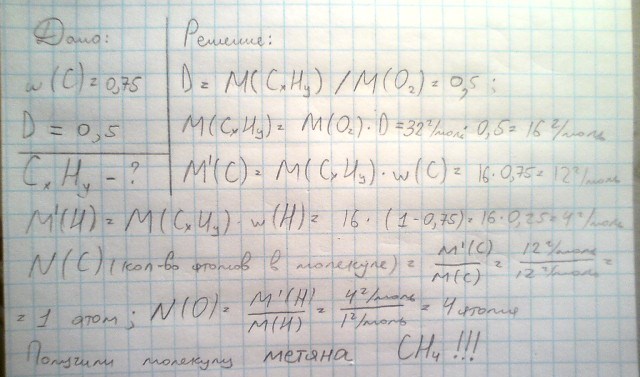 Дано:
w(C)=0,75
D = 0,5
CₓHᵧ - ?
Решение:
D = M(CₓHᵧ) / M(O₂) = 0,5;
M(CₓHᵧ) = M(O₂) · D = 32 г/моль · 0,5 = 16 г/моль
M'(C) = M(CₓHᵧ) · w(C) = 16 · 0,75 = 12 г/моль
M'(H) = M(CₓHᵧ) · w(H) = 16 · (1-0,75) = 16 · 0,25 = 4 г/моль
N(C) (кол-во атомов в молекуле) = M'(C)/M(C) = 12 г/моль / 12 г/моль =
= 1 атом; N(O) = M'(H)/M(H) = 4 г/моль / 1 г/моль = 4 атома
Получили молекулу метана CH₄ !!!